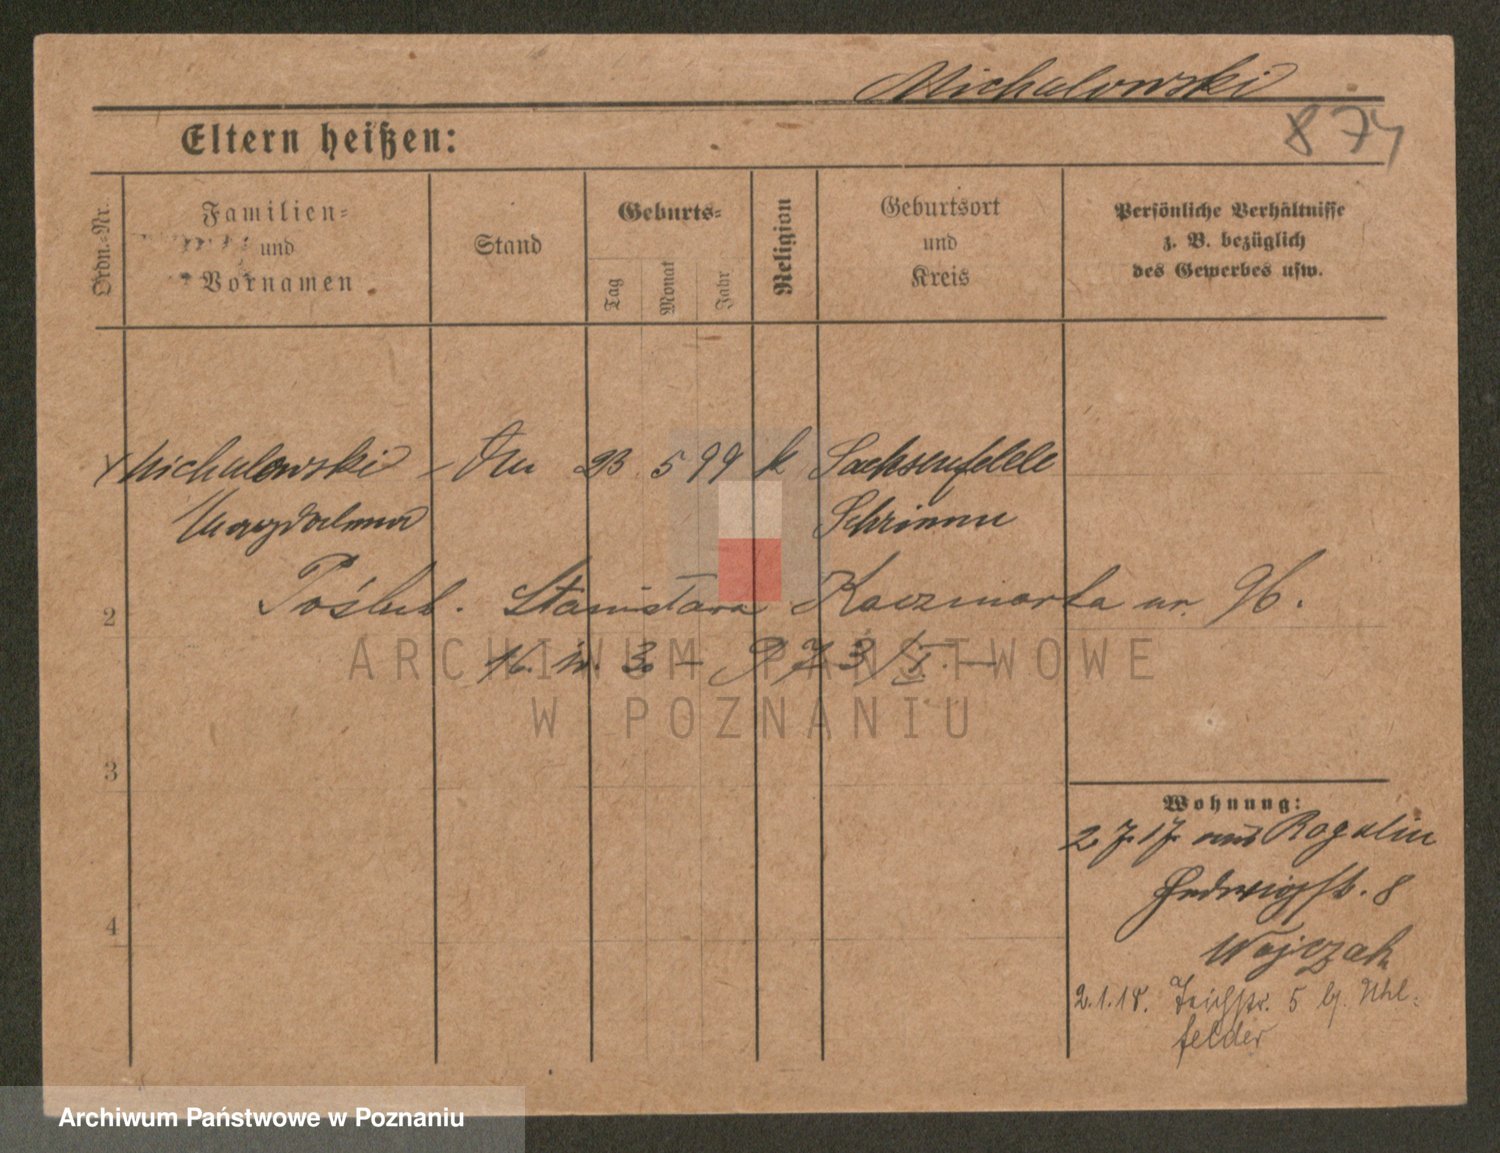 Michalowski
874
Eltern heißen:
Ordn.-Nr.
Familien-
und
Vornamen
Stand
Geburts-
Tag
Monat
Jahr
Religion
Geburtsort
und
Kreis
Persönliche Verhältnisse
z. B. bezüglich
des Gewerbes usw.
Michalowski 23 5 99 k Sachsenfelde
Magdalena Schrimm
Poślub. Stanisława Kaczmarka ur. 96.
2
16. w. 3. - 973/I. -
ARCHIWUM PAŃSTWOWE
W POZNANIU
3
Wohnung:
2.7.17. aus Rogalin
Hedwigstr. 8
4
Wojczak
2.1.18. Teichstr. 5 bj. Uhl-
felder
Archiwum Państwowe w Poznaniu